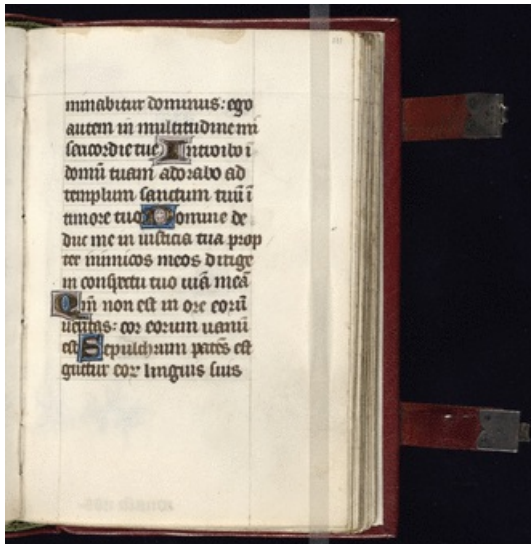 minabitur dominus: ego
autem in multitudine mi
sericordie tue Introibo i
domū tuam adorabo ad
templum sanctum tuū ī
timore tuo Domine de
duc me in iusticia tua prop
ter inimicos meos dirige
in conspectu tuo uiā meā
Qm̄ non est in ore eorū
ueritas: cor eorum uanū
est Sepulchrum patēs est
guttur eoꝝ linguis suis